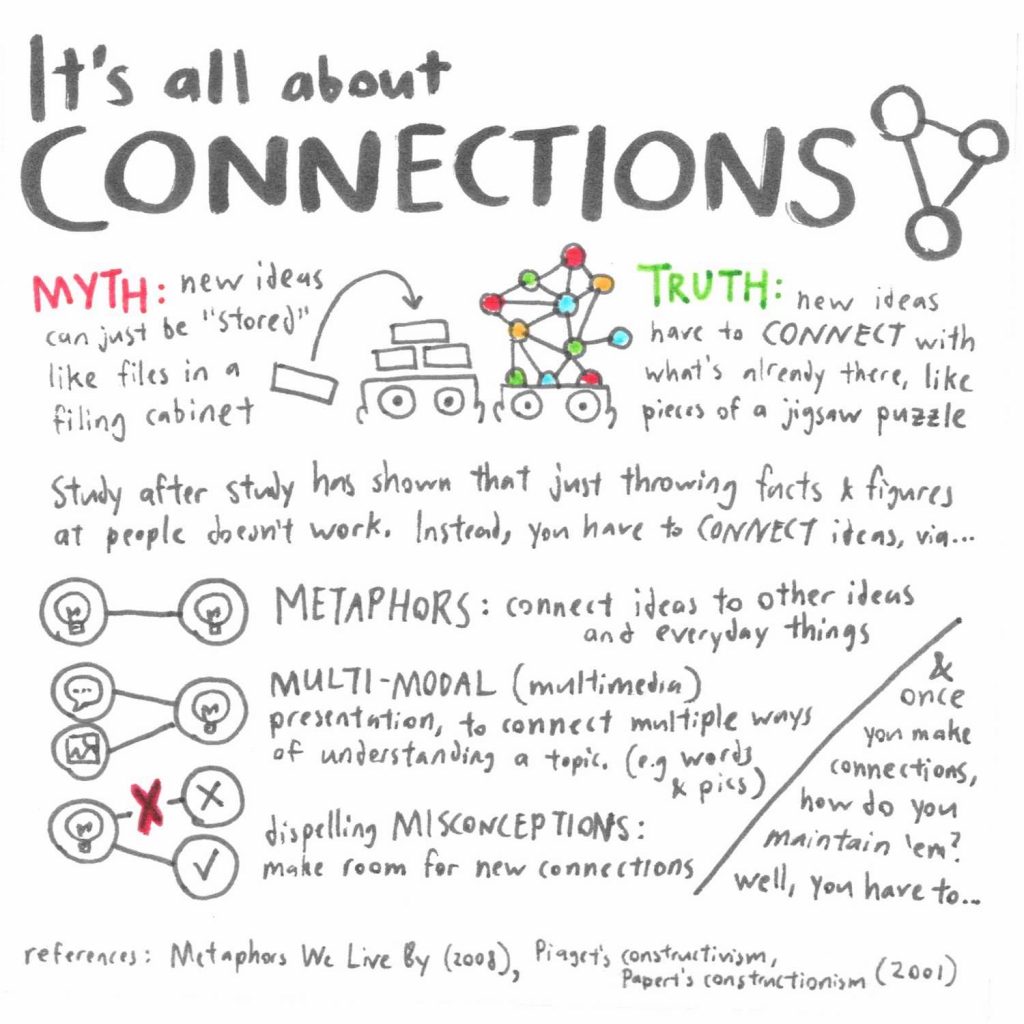 It's all about
CONNECTIONS
MYTH: new ideas
can just be "stored"
like files in a
filing cabinet
TRUTH: new ideas
have to CONNECT with
what's already there, like
pieces of a jigsaw puzzle
Study after study has shown that just throwing facts & figures
at people doesn't work. Instead, you have to CONNECT ideas, via...
METAPHORS: connect ideas to other ideas
and everyday things
MULTI-MODAL (multimedia)
presentation, to connect multiple ways
of understanding a topic. (e.g words
& pics)
dispelling MISCONCEPTIONS:
make room for new connections
&
once
you make
connections,
how do you
maintain 'em?
well, you have to...
references: Metaphors We Live By (2008), Piaget's constructivism,
Papert's constructionism (2001)